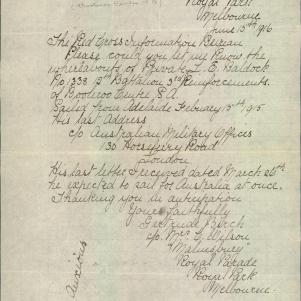 Royal Park
Melbourne
June 15th 1916
The Red Cross Information Bureau
Please could you let me know the
whereabouts of Private L. E. Baldock
No. 338 Battalion Reinforcements
of Booleroo Centre S.A.
Sailed from Adelaide February 15th 1915
His last Address
c/o Australian Military Offices
130 Horseferry Road
London
His last letter I received dated March 26th
he expected to sail for Australia at once.
Thanking you in anticipation
Yours faithfully
Gertrude Birch
c/o Mrs Wilson
"Malmsbury"
Royal Parade
Royal Park
Melbourne
Anxious